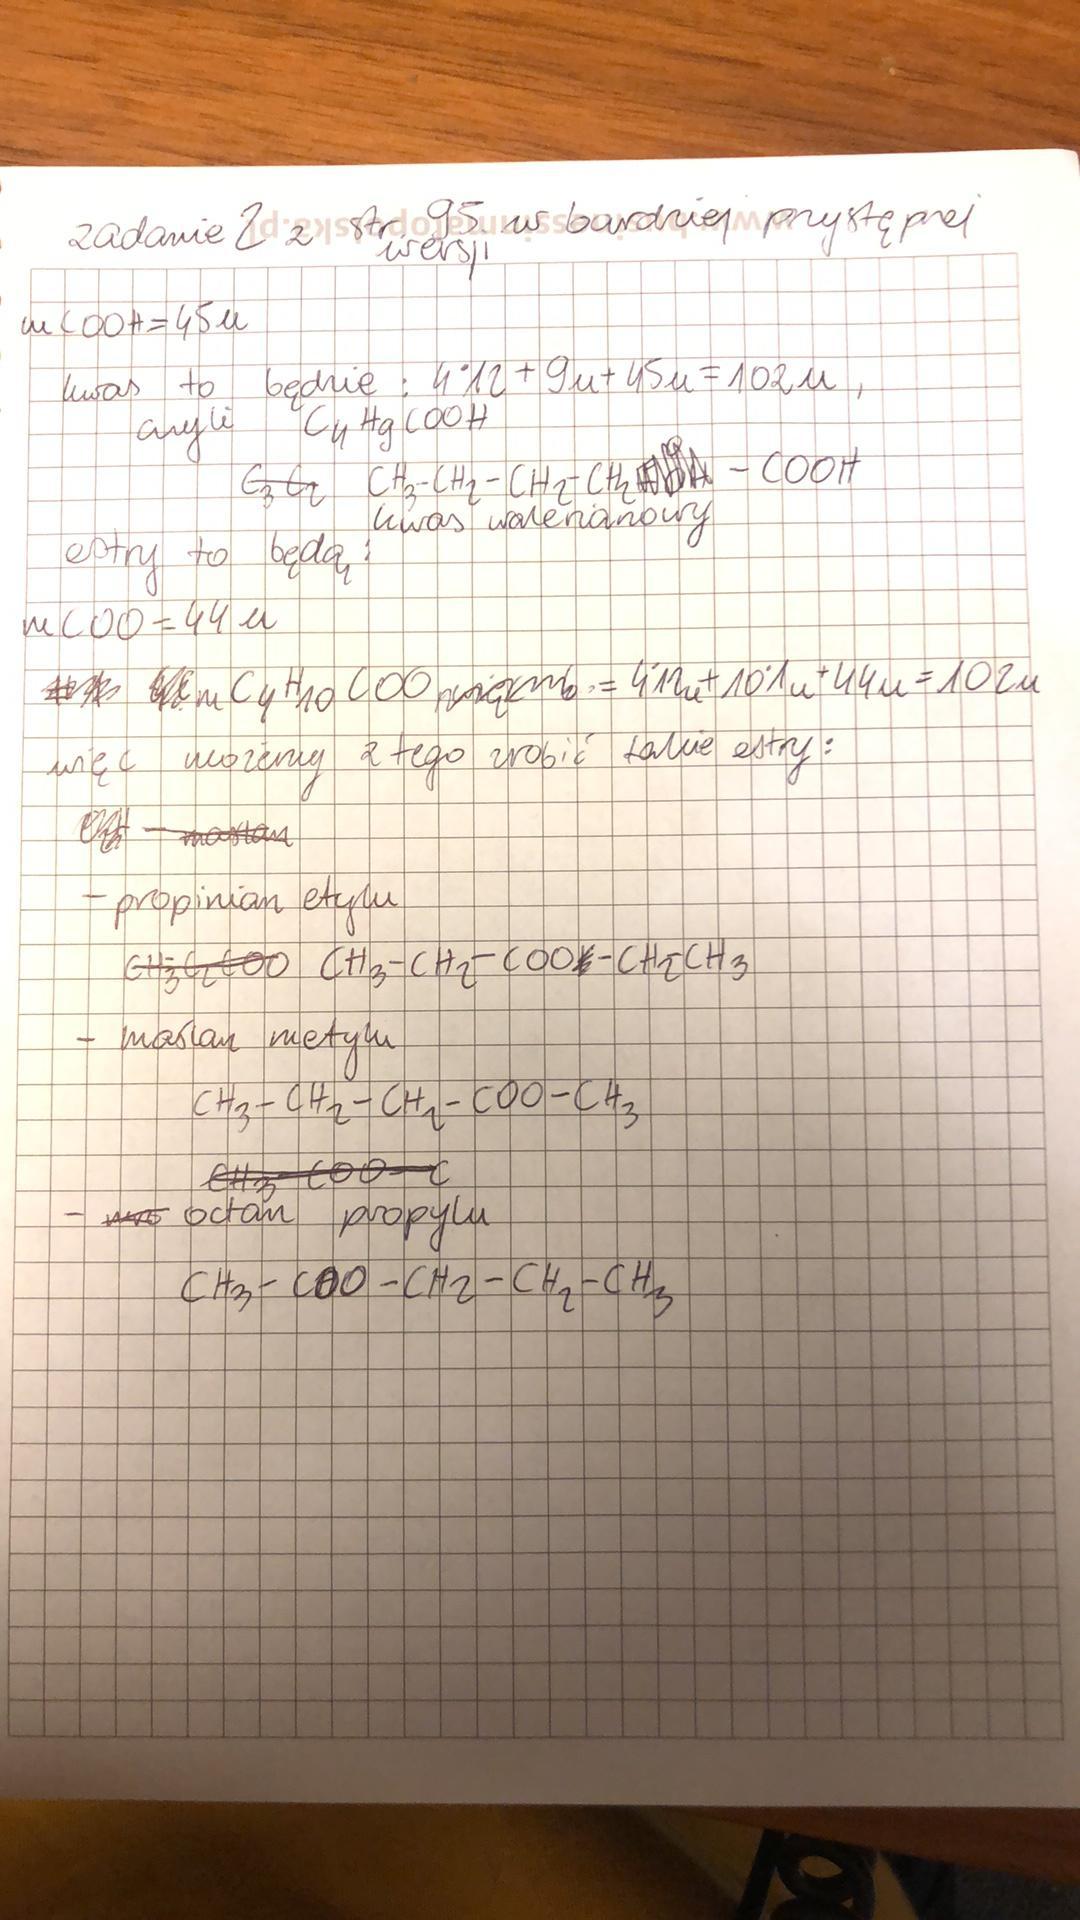 zadanie 2 z str 95 w bardziej przystępnej
wersji
mCOOH=45u
kwas to będzie: 4·12+9u+45u=102u,
czyli C4H9COOH
CH3-CH2-CH2-CH2-COOH
kwas walerianowy
estry to będą:
mCOO=44u
mC4H10COO = 4·12u+10·1u+44u=102u
więc możemy z tego zrobić takie estry:
- maślan
- propinian etylu
CH3C2COO CH3-CH2-COO-CH2CH3
- maślan metylu
CH3-CH2-CH2-COO-CH3
CH3-COO-C
- octan propylu
CH3-COO-CH2-CH2-CH3